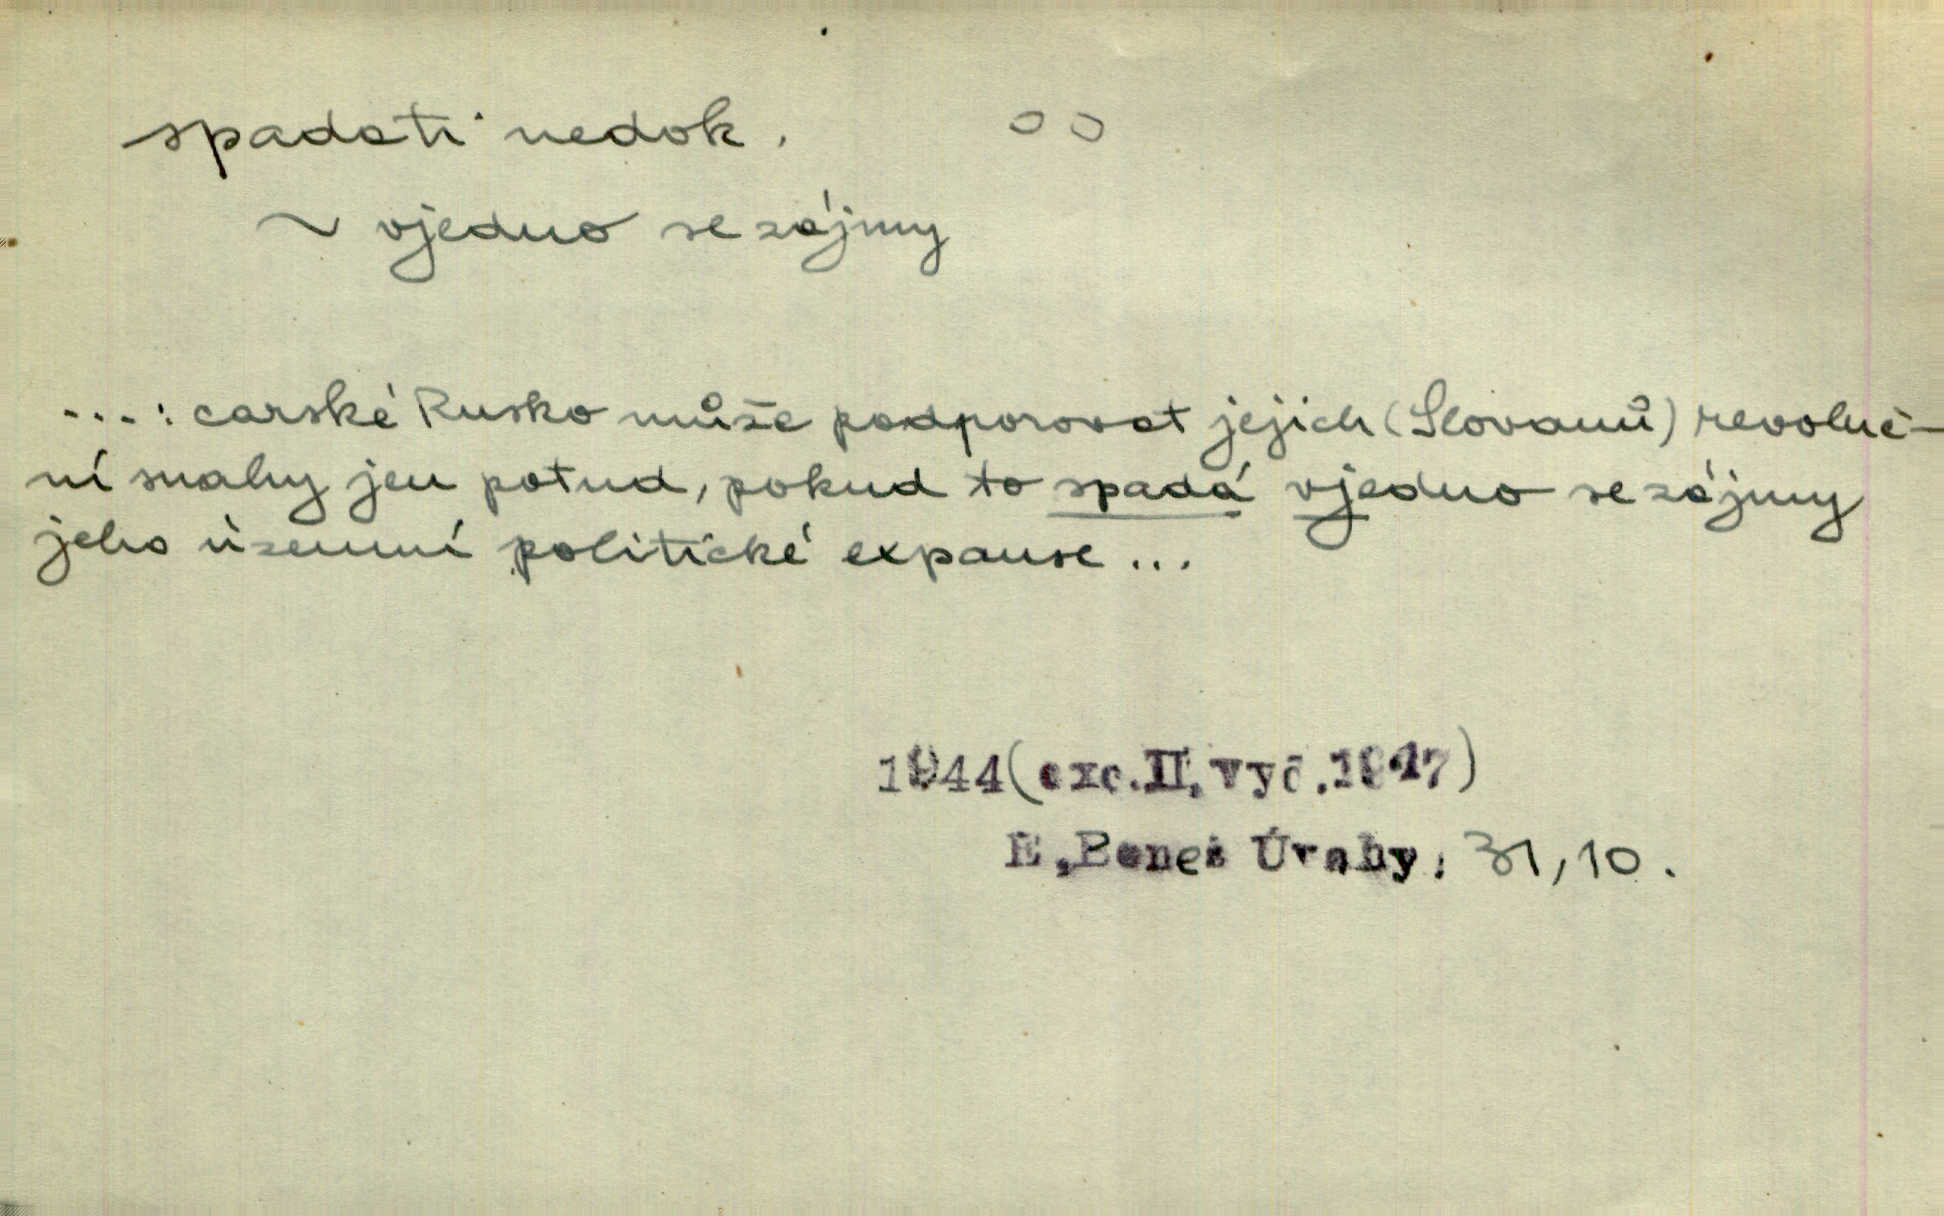 spadati nedok. oo
~ vjedno se zájmy
...: carské Rusko může podporovat jejich (Slovanů) revoluč-
ní snahy jen potud, pokud to spadá vjedno se zájmy
jeho územní politické expanse...
1944(exc.II, vyč.1947)
E.Beneš Úvahy, 31,10.